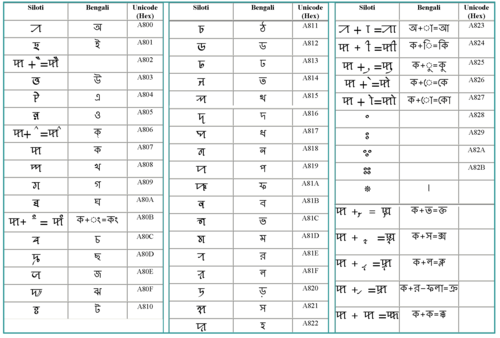 Siloti Bengali Unicode (Hex)
ꠀ অ A800
ꠁ ই A801
ꠇ + ꠂ = ꠇꠂ A802
ꠃ উ A803
ꠄ এ A804
ꠅ ও A805
ꠇ + ꠆ = ꠇ꠆ ক্ A806
ꠇ ক A807
ꠈ খ A808
ꠉ গ A809
ꠊ ঘ A80A
ꠇ + ꠋ = ꠇꠋ ক+ং=কং A80B
ꠌ চ A80C
ꠍ ছ A80D
ꠎ জ A80E
ꠏ ঝ A80F
ꠐ ট A810
Siloti Bengali Unicode (Hex)
ꠑ ঠ A811
ꠒ ড A812
ꠓ ঢ A813
ꠔ ত A814
ꠕ থ A815
ꠖ দ A816
ꠗ ধ A817
ꠘ ন A818
ꠙ প A819
ꠚ ফ A81A
ꠛ ব A81B
ꠜ ভ A81C
ꠝ ম A81D
ꠞ র A81E
ꠟ ল A81F
ꠠ ড় A820
ꠡ স A821
ꠢ হ A822
Siloti Bengali Unicode (Hex)
ꠀ + ꠣ = ꠀꠣ অ+া=আ A823
ꠇ + ꠤ = ꠇꠤ ক+ি=কি A824
ꠇ + ꠥ = ꠇꠥ ক+ু=কু A825
ꠇ + ꠦ = ꠇꠦ ক+ে=কে A826
ꠇ + ꠧ = ꠇꠧ ক+ো=কো A827
꠨ A828
꠩ A829
꠪ A82A
꠫ A82B
❋ ।
ক+ত=ক্ত
ক+স=ক্স
ক+ল=ক্ল
ক+র-ফলা=ক্র
ꠇ + ꠇ = ꠇ꠆ꠇ ক+ক=ক্ক